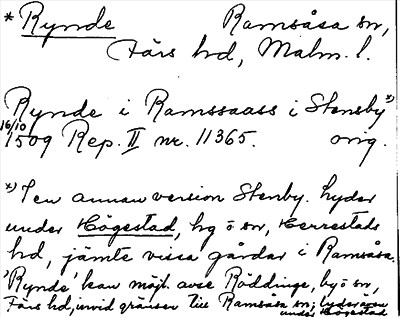 * Rynde Ramsåsa sn,
Färs hd, Malm. l.
Rynde i Ramssaass i Stensby *)
16/10 1509 Rep. II nr. 11365. orig.
*) I en annan version Stenby. lyder
under Högestad, hg o sn, Herrestads
hd, jämte vissa gårdar i Ramsåsa.
'Rynde' kan möjl. avse Röddinge, by o sn,
Färs hd, invid gränsen till Ramsåsa sn;
under Högestad